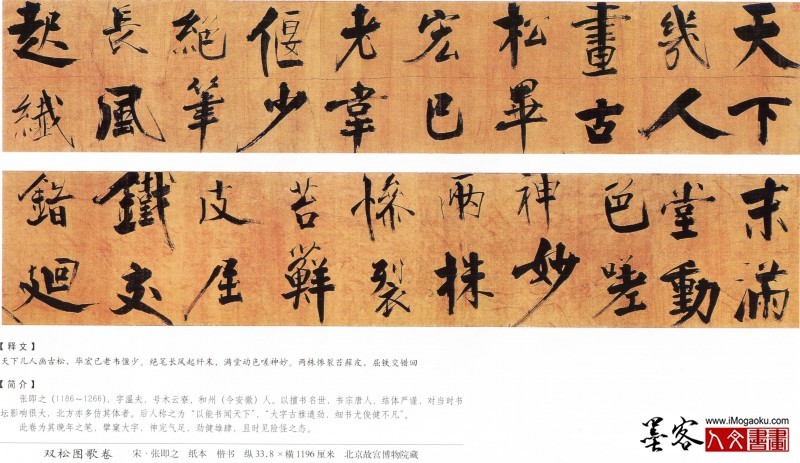 天下
幾人
畫古
松畢
宏已
老韋
偃少
絕筆
長風
起纖
末滿
堂動
色嗟
神妙
兩株
慘裂
苔蘚
皮屈
鐵交
錯廻
【释文】
天下几人画古松，毕宏已老韦偃少。绝笔长风起纤末，满堂动色嗟神妙。两株惨裂苔藓皮，屈铁交错回
【简介】
张即之（1186～1266），字温夫，号木云寮，和州（今安徽）人。以擅书名世，书宗唐人，结体严谨，对当时书
坛影响很大，北方亦多仿其体者。后人称之为“以能书闻天下”，“大字古雅遒劲，细书尤俊健不凡”。
此卷为其晚年之笔，擘窠大字，神完气足，劲健雄肆，且时见险怪之态。
双松图歌卷 宋·张即之 纸本 楷书 纵33.8×横1196厘米 北京故宫博物院藏
www.iMogaoku.com
墨客 人文書畫